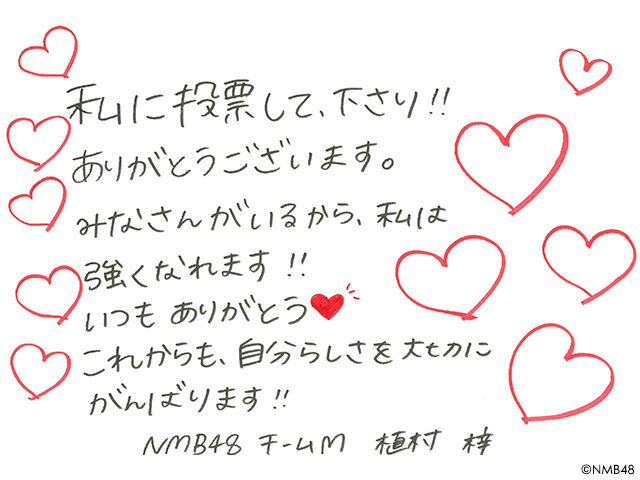 私に投票して、下さり!!
ありがとうございます。
みなさんがいるから、私は
強くなれます!!
いつもありがとう
これからも、自分らしさを大切に
がんばります!!
NMB48 チームM 植村 梓
©NMB48